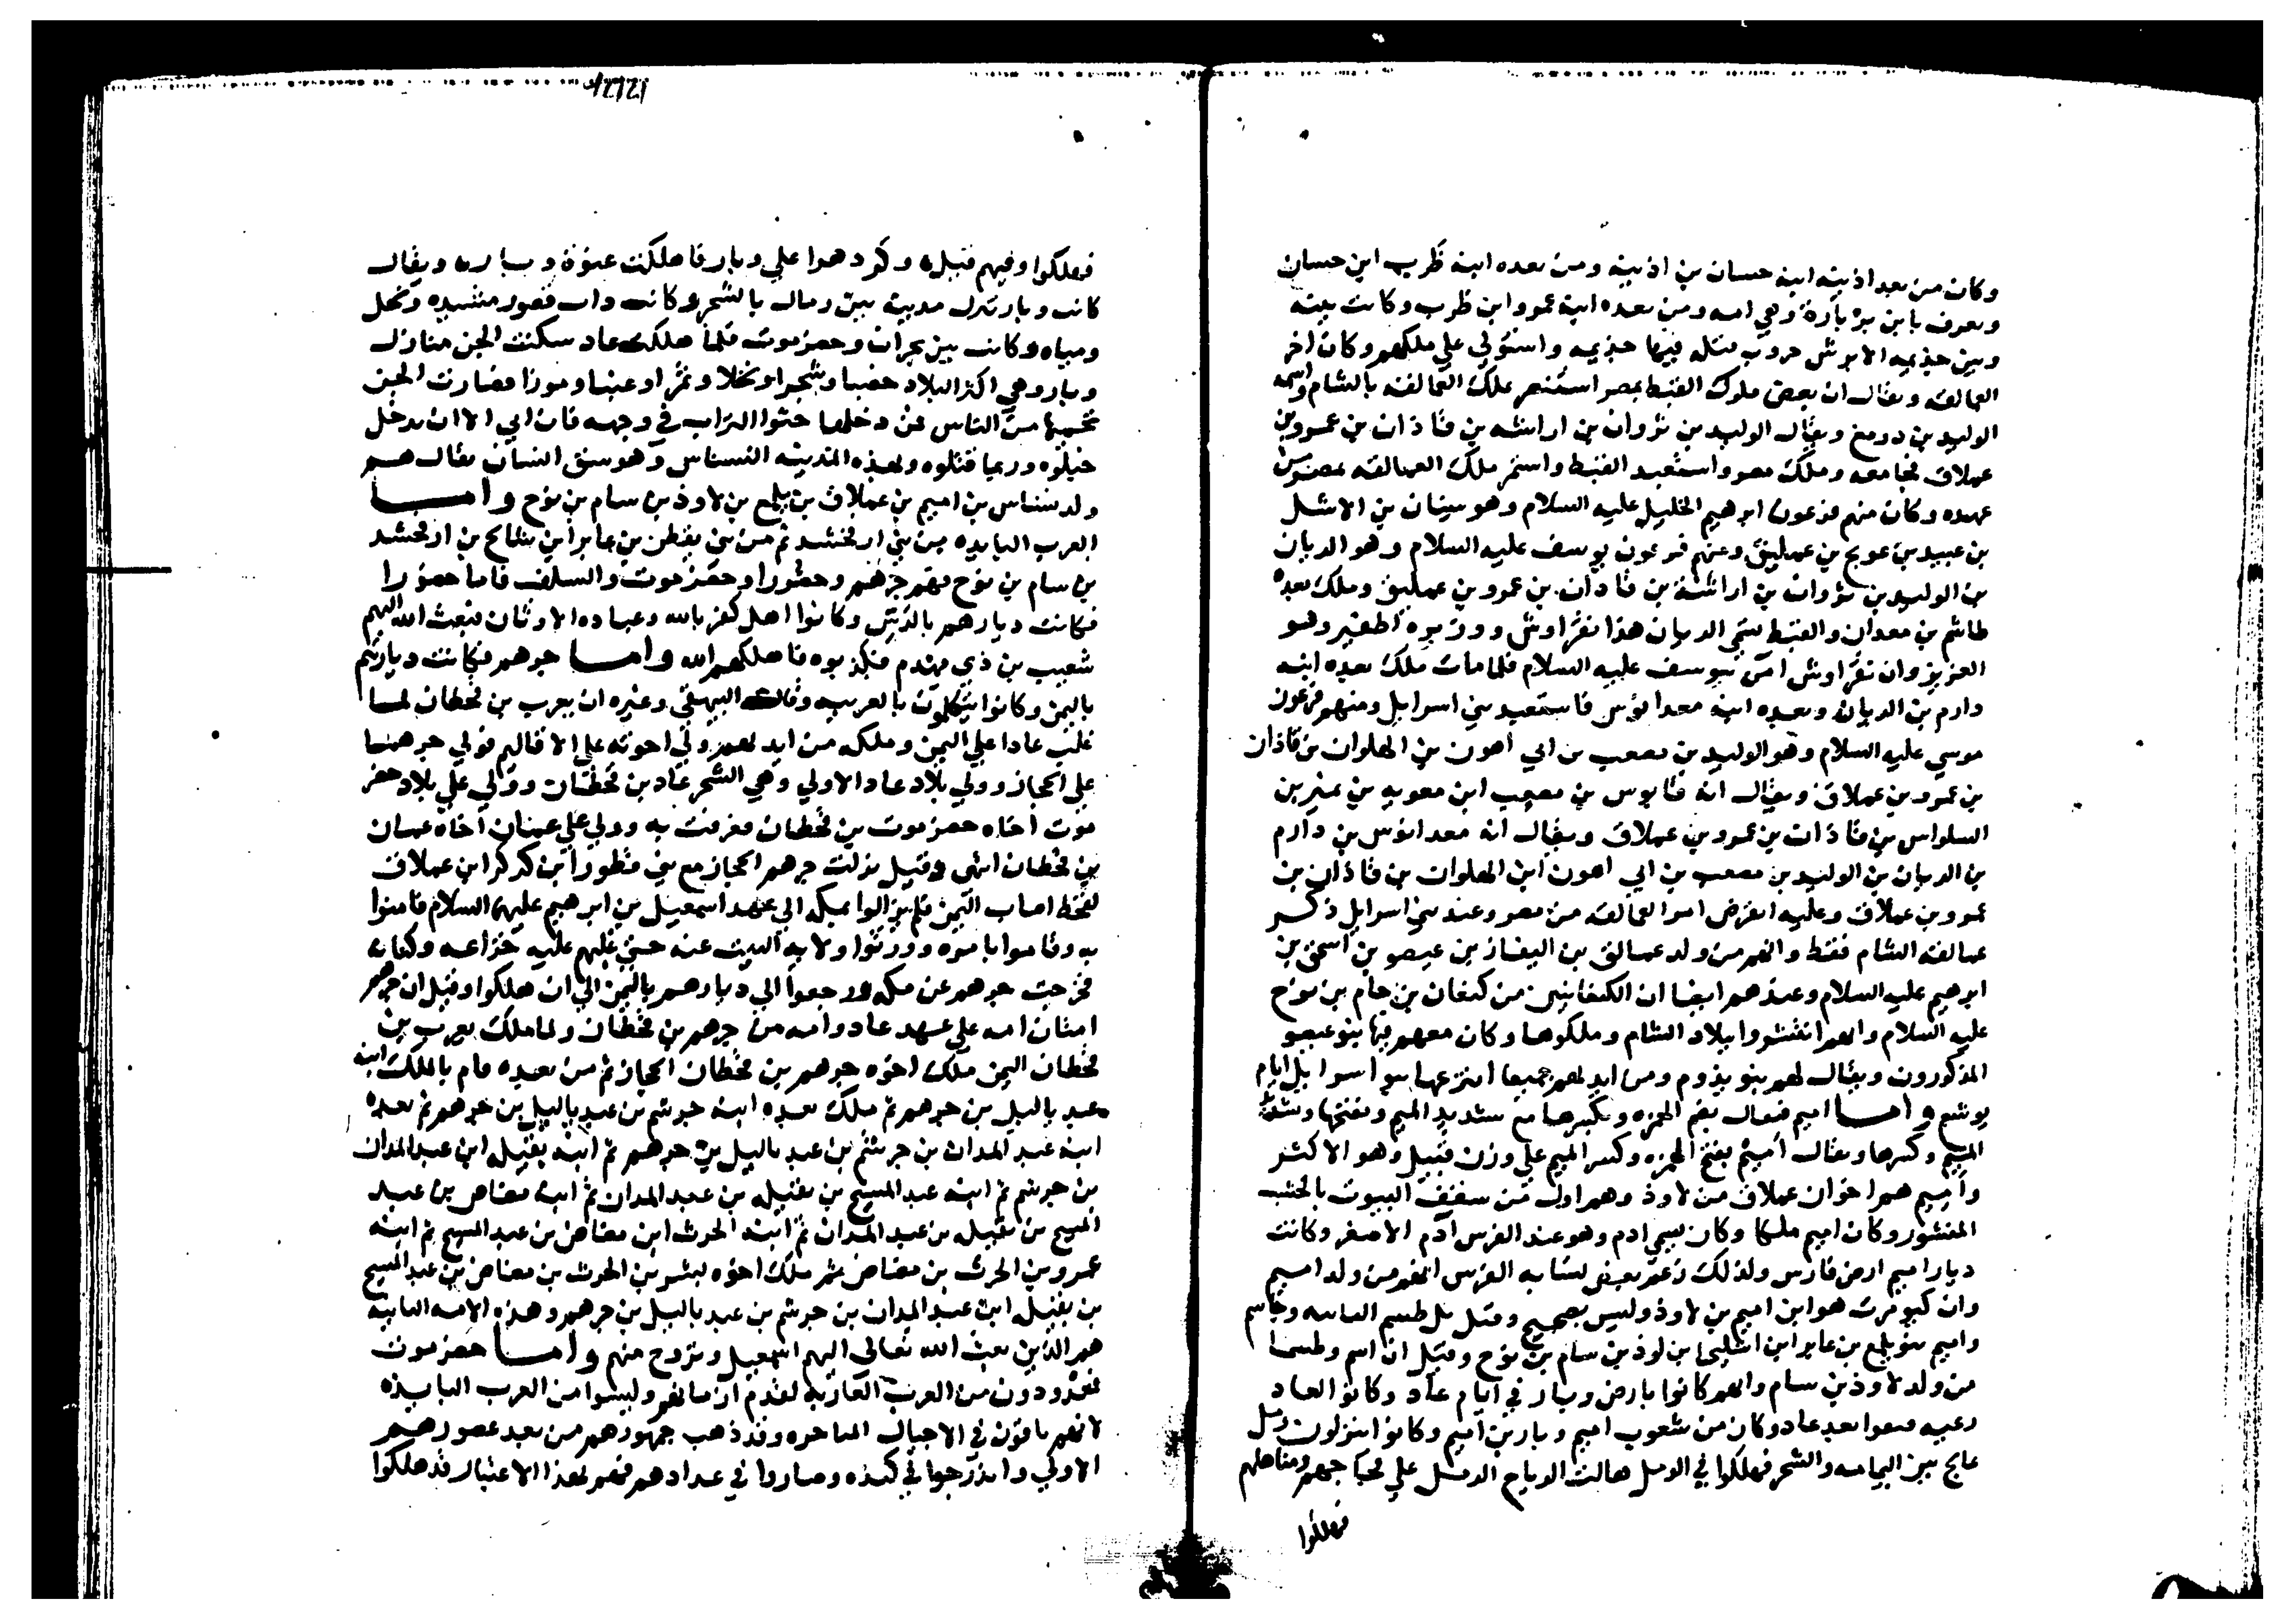 وكان من بعد اذينه ابنه حسان بن اذينه ومن بعده ابنه ظرب ابن حسان
ويعرف بابن وهي امه ومن بعده ابنه عمرو ابن ظرب وكانت بينه
وبين جذيمه الابرش حروب قتله فيها جذيمه واستولي علي ملكهم وكان اخر
العمالقه ويقال ان بعض ملوك القبط بمصر استنصر بملك العمالقه بالشام واسمه
الوليد بن دومع ويقال الوليد بن ثروان بن اراشه بن فاذان بن عمرو بن
عملاق فجا معه وملك مصر واستعبد القبط واستمر ملك العمالقه بمصر من
عهده وكان منهم فرعون ابرهيم الخليل عليه السلام وهو سنان بن الاشل
بن عبيد بن عويج بن عمليق ومنهم فرعون يوسف عليه السلام وهو الريان
بن الوليد بن ثروان بن اراشة بن فادان بن عمرو بن عمليق وملك بعده
طاشم بن معدان والقبط تسمي الريان هذا نقراوش ووزيره اطفير وهو
العزيز وان نقراوش امن بيوسف عليه السلام فلما مات ملك بعده ابنه
دارم بن الريان وبعده ابنه معدانوس فاستعبد بني اسرايل ومنهم فرعون
موسي عليه السلام وهو الوليد بن مصعب بن ابي اهون بن الهلوان بن فاذان
بن عمرو بن عملاق ويقال انه قابوس بن مصعب ابن معويه بن نمير بن
السلواس بن فاذان بن عمرو بن عملاق ويقال انه معدانوس بن دارم
بن الريان بن الوليد بن مصعب بن ابي اهون ابن الهلوات بن فاذان بن
عمرو بن عملاق وعليه انقرض امر العمالقه من مصر وعند بني اسرايل ذكر
عمالقه الشام فقط وانهم من ولد عمالق بن اليفاز بن عيصو بن اسحق بن
ابرهيم عليه السلام وعندهم ايضا ان الكنعانيين من كنعان بن حام بن نوح
عليه السلام وانهم انتشروا ببلاد الشام وملكوها وكان معهم فيها بنو عيصو
المذكورون ويقال لهم بنو يذوم ومن ايديهم جميعا انتزعها بنو اسرايل ايام
يوشع واما اميم فيقال بضم الهمزه وبكسرها مع تشديد الميم وبفتحها وتشديد
الميم وكسرها ويقال اميم بفتح الهمزه وكسر الميم علي وزن قتيل وهو الاكثر
واميم هم اخوان عملاق من لاوذ وهم اول من سقف البيوت بالخشب
المنشور وكان اميم ملكا وكان يسمي ادم وهو عند الفرس آدم الاصغر وكانت
ديار اميم ارض فارس ولذلك زعم بعض نسابه الفرس انهم من ولد اميم
وان كيومرت هو ابن اميم بن لاوذ وليس بصحيح وقيل بل طسم وجاسم
واميم بنو يلمع بن عابر ابن اشليخا بن لوذ بن سام بن نوح وقيل ان اميم وطسما
من ولد لاوذ بن سام وانهم كانوا بارض وبار في ايام عاد وكانوا لعاد
رعيه بعد عاد وكان من شعوب اميم وبار بن اميم وكانوا ينزلون رمل
عالج بين اليمامه والشحر فهلكوا في الرمل هالت الرياح الرمل علي فجاجهم ومناهلهم
فهلكوا
فهلكوا وفيهم قيل وكر دهر علي وبار فاهلكت عنوة وبار ويقال
كانت وبار تنزل مدينة بين رمال بالشحر وكانت ذات قصور مشيده ونخل
ومياه وكانت بين نجران وحضرموت فلما هلكت عاد سكنت الجن منازل
وبار وهي اكثر البلاد خصبا وشجرا ونخلا وثمرا وعنبا وموزا فصارت الجن
تحميها من الناس فمن دخلها حثوا التراب في وجهه فان ابي الا ان يدخل
خبلوه وربما قتلوه ولهذه المدينه النسناس وهو شق انسان يقال هم
ولد نسناس بن اميم بن عملاق بن يلمع بن لاوذ بن سام بن نوح واما
العرب البايده من بني ارفخشد ثم من بني يقطن بن عابر ابن شالح بن ارفخشد
بن سام بن نوح فهم جرهم وحضورا وحضرموت والسلف فاما حضورا
فكانت ديارهم بالرس وكانوا اهل كفر بالله وعباده الاوثان فبعث الله اليهم
شعيب بن ذي مهدم فكذبوه فاهلكهم الله واما جرهم فكانت ديارهم
باليمن وكانوا يتكلمون بالعربيه وقال البيهقي وغيره ان يعرب بن قحطان لما
غلب عادا علي اليمن وملكه من ايديهم وولي اخوته علي الاقاليم فولي جرهما
علي الحجاز وولي بلاد عاد الاولي وهي الشحر عاد بن قحطان وولي علي بلاد حضر
موت اخاه حضرموت بن قحطان فعرفت به وولي علي عمان اخاه عمان
بن قحطان انتهي وقيل نزلت جرهم الحجاز مع بني قطورا بن كركر ابن عملاق
لقحط اصاب اليمن فلم يزالوا بمكه الي عهد اسمعيل بن ابرهيم عليهما السلام فامنوا
به وقاموا بامره وورثوا ولايه البيت عنه حتي غلبهم عليه خزاعه وكنانه
فخرجت جرهم عن مكه ورجعوا الي ديارهم باليمن الي ان هلكوا وقيل ان جرهم
امتان امه علي عهد عاد وامه من جرهم بن قحطان ولما ملك يعرب بن
قحطان اليمن ملك اخوه جرهم بن قحطان الحجاز ثم من بعده قام بالملك ابنه
عبد ياليل بن جرهم ثم ملك بعده ابنه جرشم بن عبد ياليل بن جرهم ثم بعده
ابنه عبد المدان بن جرشم بن عبد ياليل بن جرهم ثم ابنه بقيله ابن عبد المدان
بن جرشم ثم ابنه عبد المسيح بن بقيله بن عبد المدان ثم ابنه مضاض بن عبد
المسيح بن بقيله بن عبد المدان ثم ابنه الحرث ابن مضاض بن عبد المسيح ثم ابنه
عمرو بن الحرث بن مضاض ثم ملك اخوه بشر بن الحرث بن مضاض بن عبد المسيح
بن بقيله ابن عبد المدان بن جرشم بن عبد ياليل بن جرهم وهذه الامه الثانيه
هم الذين بعث الله تعالي اليهم اسمعيل وتزوج منهم واما حضرموت
فمعدودون من العرب العاربه لقدم ازمانهم وليسوا من العرب البايده
لانهم باقون في الاجيال المتاخره وقد ذهب جمهورهم من بعد عصورهم
الاولي واندرجوا في كنده وصاروا في عدادهم فهم لهذا الاعتبار قد هلكوا